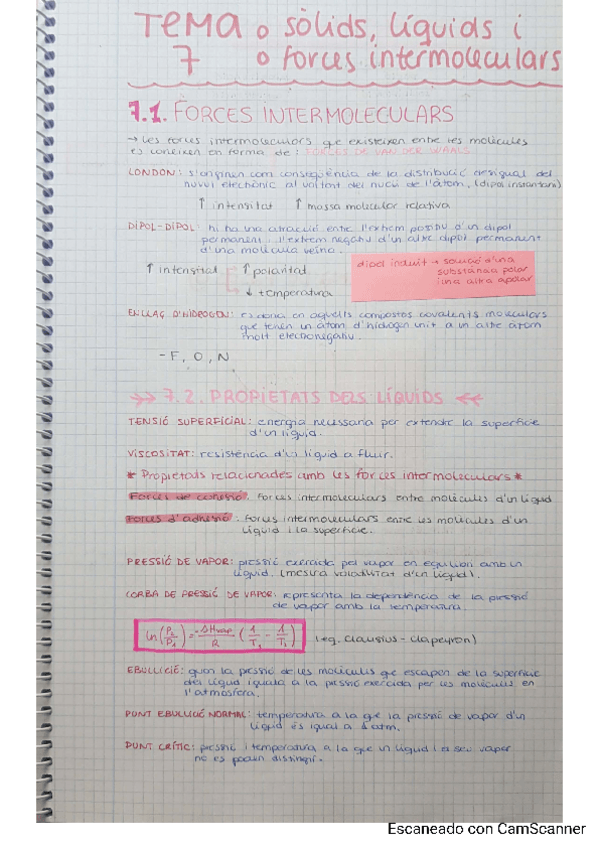 TEMA o sòlids, líquids i
7 o forces intermoleculars
7.1. FORCES INTERMOLECULARS
→ Les forces intermoleculars que existeixen entre les molècules
es coneixen en forma de: FORCES DE VAN DER WAALS
LONDON: s'originen com conseqüència de la distribució desigual del
núvol electrònic al voltant del nucli de l'àtom. (dipol instantani)
↑ intensitat ↑ massa molecular relativa
DIPOL-DIPOL: hi ha una atracció entre l'extrem positiu d'un dipol
permanent i l'extrem negatiu d'un altre dipol permanent
d'una molècula veïna.
↑ intensitat ↑ polaritat
↓ temperatura
dipol induït → solució d'una
substància polar
i una altra apolar
ENLLAÇ D'HIDROGEN: es dona en aquells compostos covalents moleculars
que tenen un àtom d'hidrogen unit a un altre àtom
molt electronegatiu.
- F, O, N
→→ 7.2. PROPIETATS DELS LÍQUIDS ←←
TENSIÓ SUPERFICIAL: energia necessaria per extendre la superfície
d'un líquid.
VISCOSITAT: resistència d'un líquid a fluir.
* Propietats relacionades amb les forces intermoleculars *
Forces de cohesió: Forces intermoleculars entre molècules d'un líquid
Forces d'adhesió: Forces intermoleculars entre les molècules d'un
líquid i la superfície.
PRESSIÓ DE VAPOR: pressió exercida pel vapor en equilibri amb un
líquid. (mesura volatilitat d'un líquid).
CORBA DE PRESSIÓ DE VAPOR: representa la dependència de la pressió
de vapor amb la temperatura.
ln(P₂/P₁) = -ΔHvap/R (1/T₂ - 1/T₁) (eq. Clausius-Clapeyron)
EBULLICIÓ: quan la pressió de les molècules que escapen de la superfície
del líquid iguala a la pressió exercida per les molècules en
l'atmosfera.
PUNT EBULLICIÓ NORMAL: temperatura a la que la pressió de vapor d'un
líquid és igual a 1 atm.
PUNT CRÍTIC: pressió i temperatura a la que un líquid i el seu vapor
no es poden distingir.
Escaneado con CamScanner